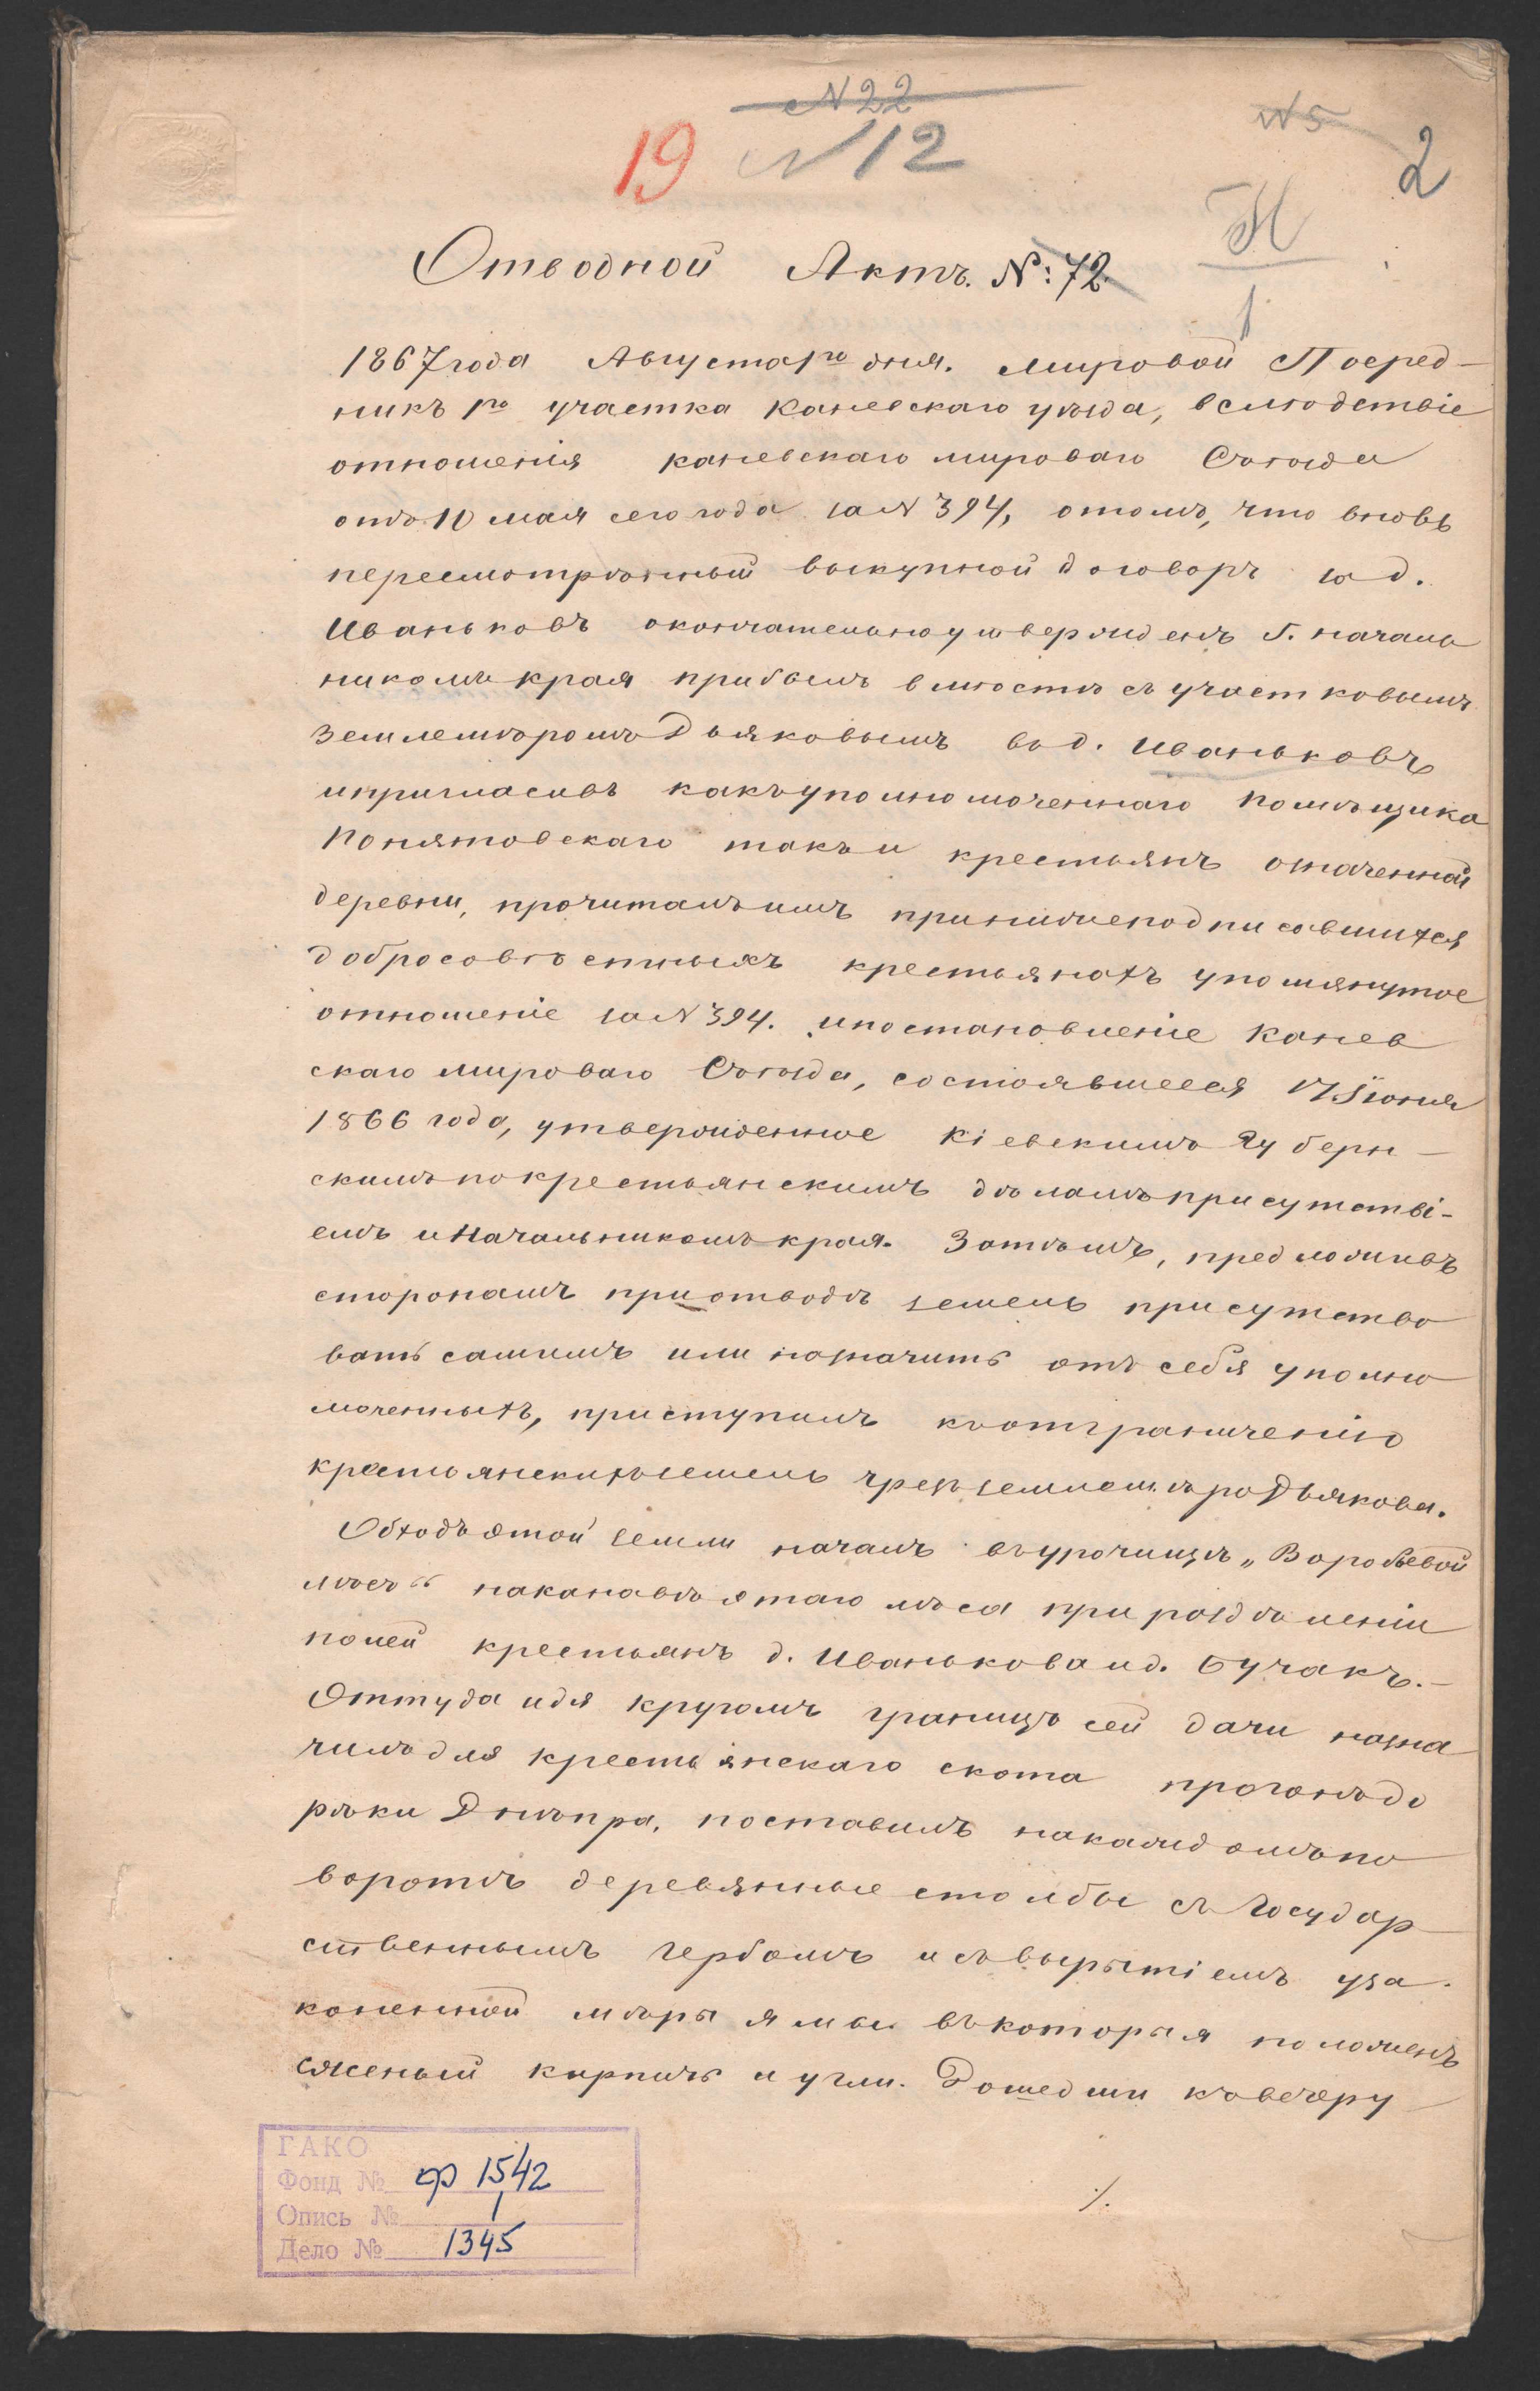 N 22
19 N 12
N 5
2
Н
1
Отводной Актъ. №: 72.
1867 года Августа 1го дня. Мировой Посред-
никъ 1го участка Каневскаго уѣзда, вслѣдствіе
отношенія Каневскаго мироваго Съѣзда
отъ 10 мая сего года за N 394, отомъ, что вновь
пересмотрѣнный выкупной договоръ по д.
Иваньковъ окончательно утвержденъ Г. началь
никомъ края прибылъ вмѣстѣ съ участковымъ
землемѣромъ Дьяковымъ въ д. Иваньковъ
ипригласивъ какъ уполномоченнаго помѣщика
Понятовскаго такъ и крестьянъ означенной
деревни, прочиталъ имъ принижеподписавшихся
добросовѣстныхъ крестьянахъ упомянутое
отношеніе за N 394. ипостановленіе Канев
скаго мироваго Съѣзда, состоявшееся 17 Іюня
1866 года, утвержденное Кіевскимъ Губерн-
скимъ покрестьянскимъ дѣламъ присутстві-
емъ и Начальникомъ края. Затѣмъ, предложивъ
сторонамъ приотводѣ земель присутство
вать самимъ или назначить отъ себя уполно
моченныхъ, приступилъ къотграниченію
крестьянскихъ земель чрезъ землемѣра Дьякова.
Обходъ этой земли началъ въурочищѣ „Воробьевой
лѣсъ“ наканавѣ этаго лѣса при раздѣленіи
полей крестьянъ д. Иванькова ид. Бучакъ.-
Оттуда идя кругомъ границъ сей дачи назна
чилъ для крестьянскаго скота прогонъ до
рѣки Днѣпра, поставилъ накаждомъ по
воротѣ деревянные столбы съ Государ
ственнымъ гербомъ и съвырытіемъ уза-
коненной мѣры ямы въкоторыя положенъ
сженый кирпичъ и угли. Дошедши квечеру
./.
ГАКО
Фонд № ф 1542
Опись № 1
Дело № 1345